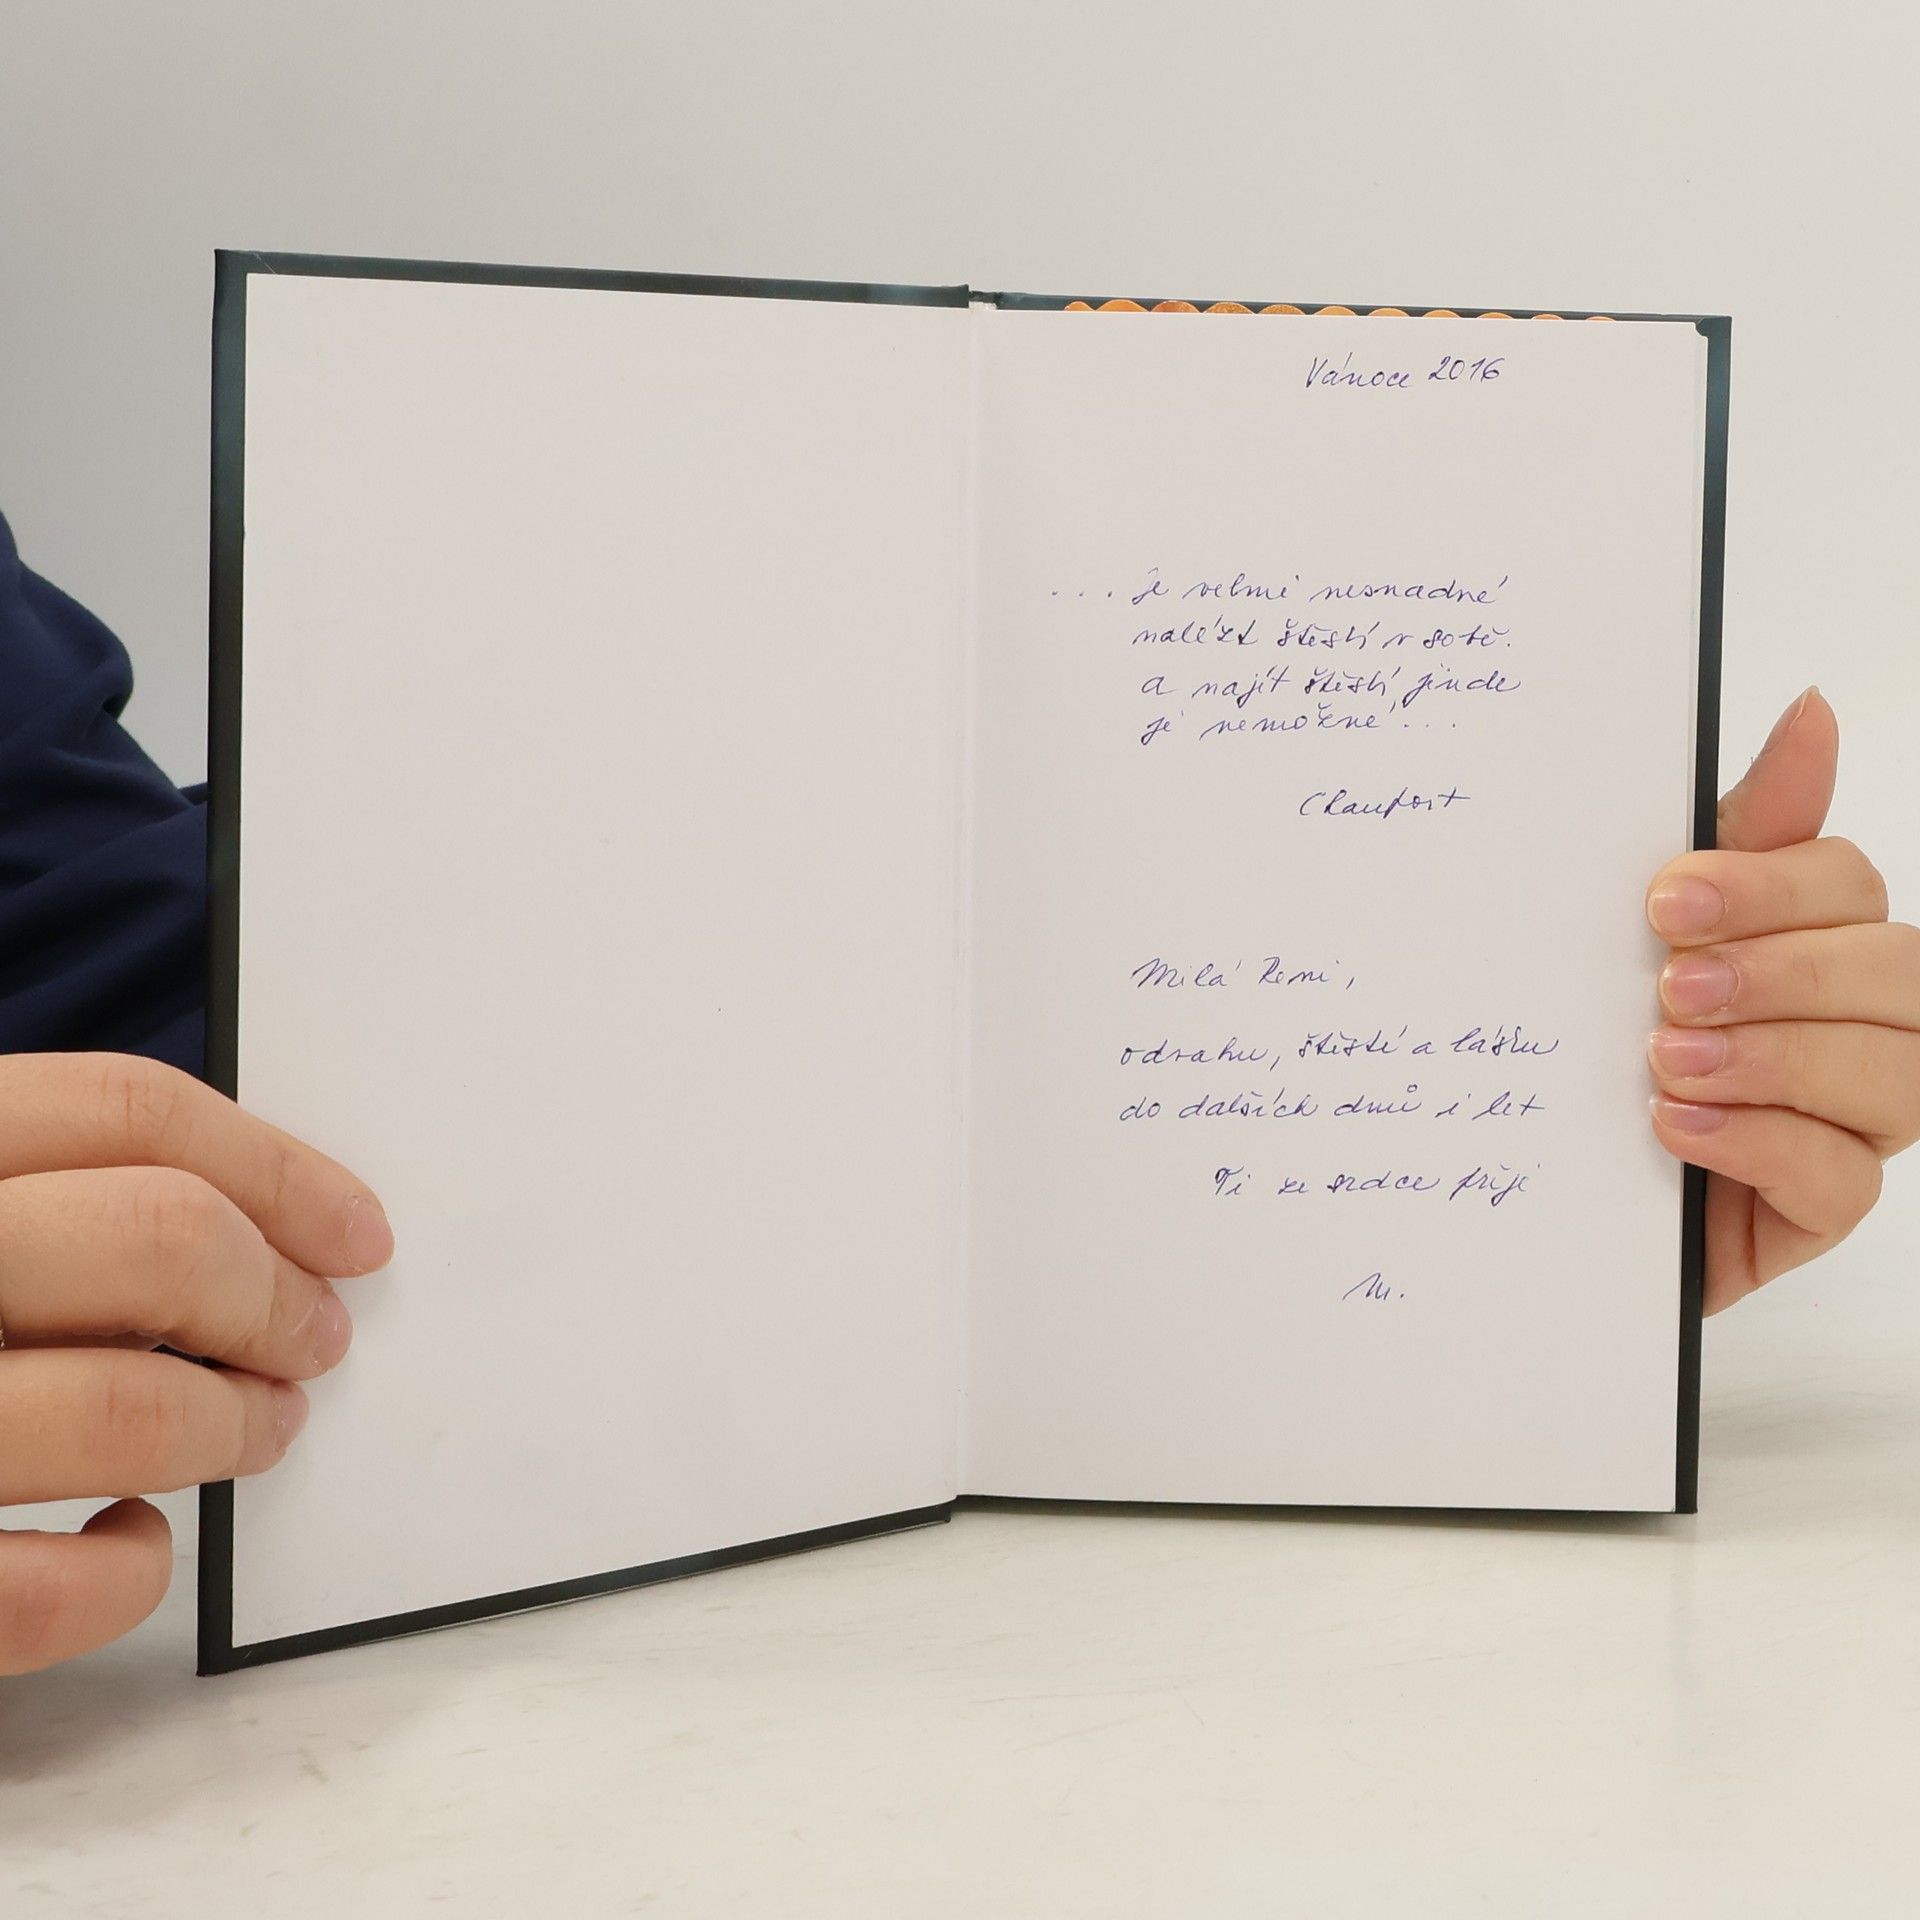 Vánoce 2016
... je velmi nesnadné
nalézt štěstí v sobě.
a najít štěstí jinde
je nemožné...
Chamfort
Milá Romi,
odvahu, štěstí a lásku
do dalších dnů i let
Ti ze srdce přeje
M.